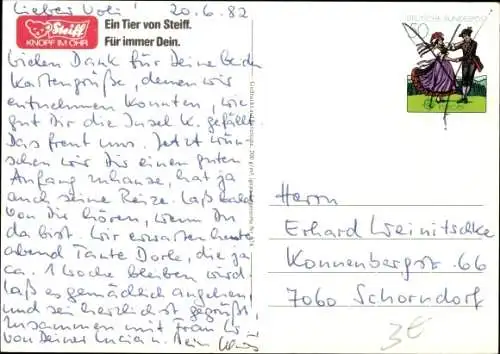 Lieber Voli! 20.6.82
Steiff
KNOPF IM OHR
Ein Tier von Steiff.
Für immer Dein.
Vielen Dank für Deine beiden
Kartengrüße, denen wir
entnehmen konnten, wie
gut Dir die Insel K. gefällt.
Das freut uns. Jetzt wün-
schen wir Dir einen guten
Anfang zuhause, hat ja
auch seine Reize. Laß bald
von Dir hören, wenn Du
da bist. Wir erwarten heute
abend Tante Dorle, die ja
ca. 1 Woche bleiben wird.
Laß es gemächlich angehen
und sei herzlichst gegrüßt,
zusammen mit Frau W.
von Deiner Lucia u. Dein
DEUTSCHE BUNDESPOST
50
Herrn
Erhard Weinitschke
Konnenbergst. 66
7060 Schorndorf
3€